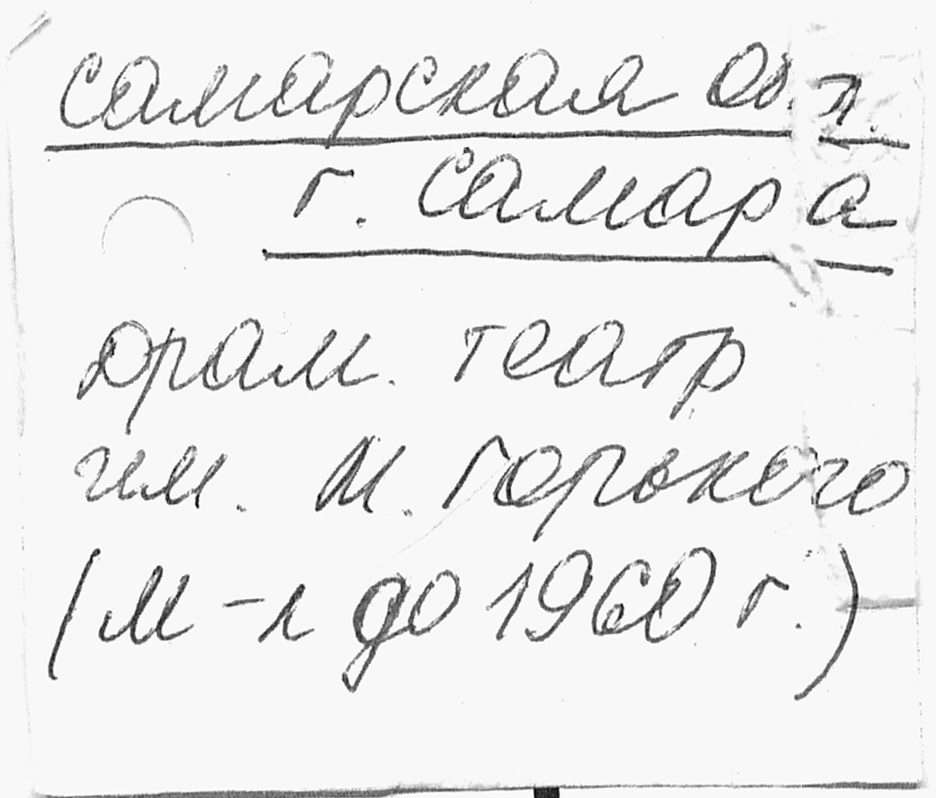 Самарская обл.
г. Самара
драм. театр
им. М. Горького
(м-л до 1960 г.)